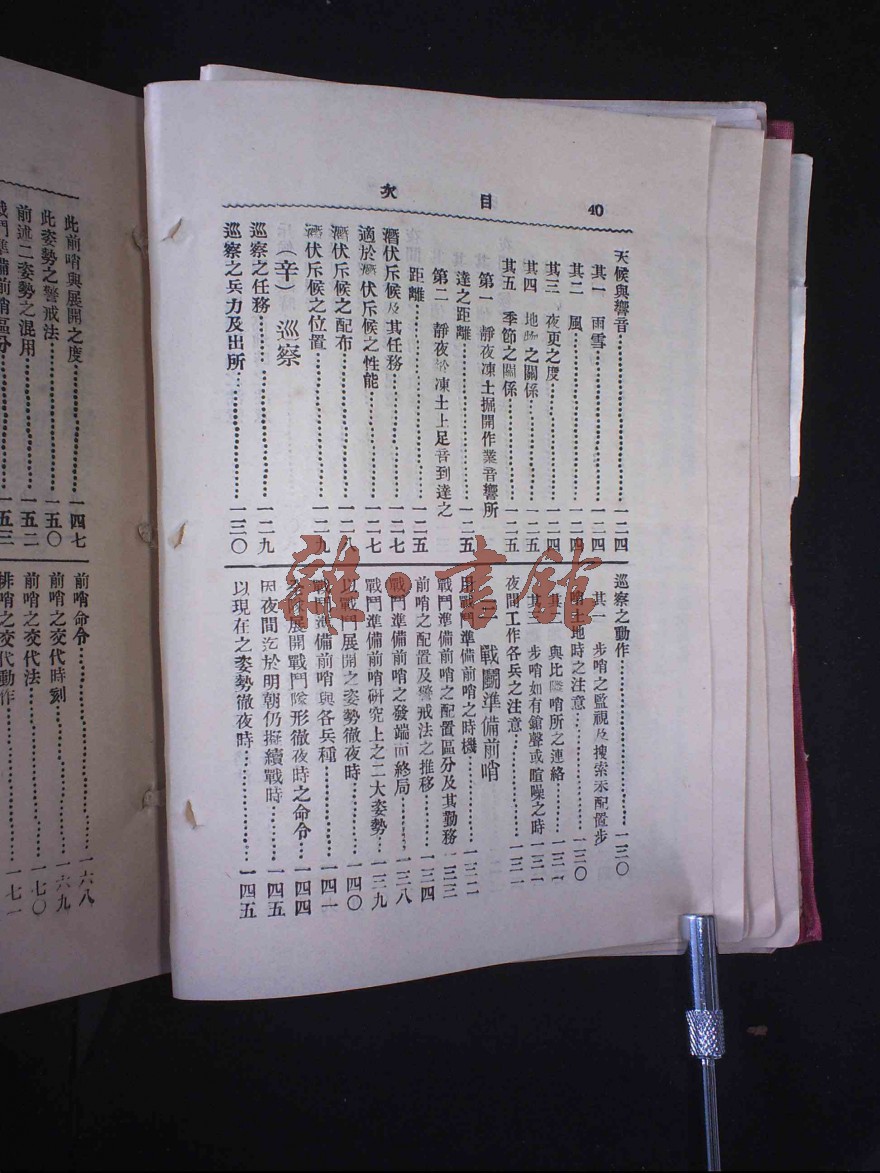 目 次
40
天候與響音……一二四
其一 雨雪……一二四
其二 風……一二四
其三 夜更之度……一二四
其四 地物之關係……一二五
其五 季節之關係……一二五
第一 靜夜凍土掘開作業音響所
達之距離……一二五
第二 靜夜於凍土上足音到達之
距離……一二五
潛伏斥候及其任務……一二七
適於潛伏斥候之性能……一二七
潛伏斥候之配布……一二八
潛伏斥候之位置……一二九
（辛） 巡察
巡察之任務……一二九
巡察之兵力及出所……一三〇
巡察之動作……一三〇
其一 步哨之監視及搜索未配置步
哨土地時之注意……一三〇
與比隣哨所之連絡……一三一
其三 步哨如有鎗聲或喧噪之時……一三一
夜間工作各兵之注意……一三一
戰鬭準備前哨
用戰鬥準備前哨之時機……一三二
戰鬥準備前哨之配置區分及其勤務……一三三
前哨之配置及警戒法之推移……一三四
戰鬥準備前哨之發端而終局……一三八
戰鬥準備前哨研究上之二大姿勢……一三九
以戰鬥展開之姿勢徹夜時……一四〇
戰鬥準備前哨與各兵種……一四一
展開戰鬥隊形徹夜時之命令……一四四
因夜間迄於明朝仍擬續戰時……一四五
以現在之姿勢徹夜時……一四五
此前哨與展開之度……一四七
此姿勢之警戒法……一五〇
前述二姿勢之混用……一五二
戰鬥準備前哨區分……一五三
前哨命令……一六八
前哨之交代時刻……一六九
前哨之交代法……一七〇
排哨之交代動作……一七一
雜·書館